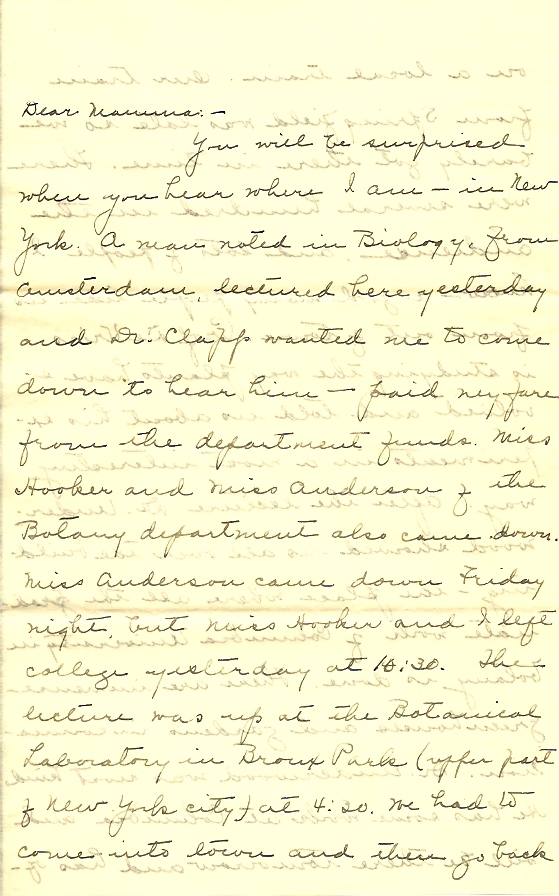 Dear Mamma:-
You will be surprised
when you hear where I am - in New
York. A man noted in Biology, from
Amsterdam, lectured here yesterday
and Dr. Clapp wanted me to come
down to hear him - paid my fare
from the department funds. Miss
Hooker and Miss Anderson of the
Botany department also came down.
Miss Anderson came down Friday
night, but Miss Hooker and I left
college yesterday at 10:30. The
lecture was up at the Botanical
Laboratory in Bronx Park (upper part
of New York city) at 4:30. We had to
come into town and then go back